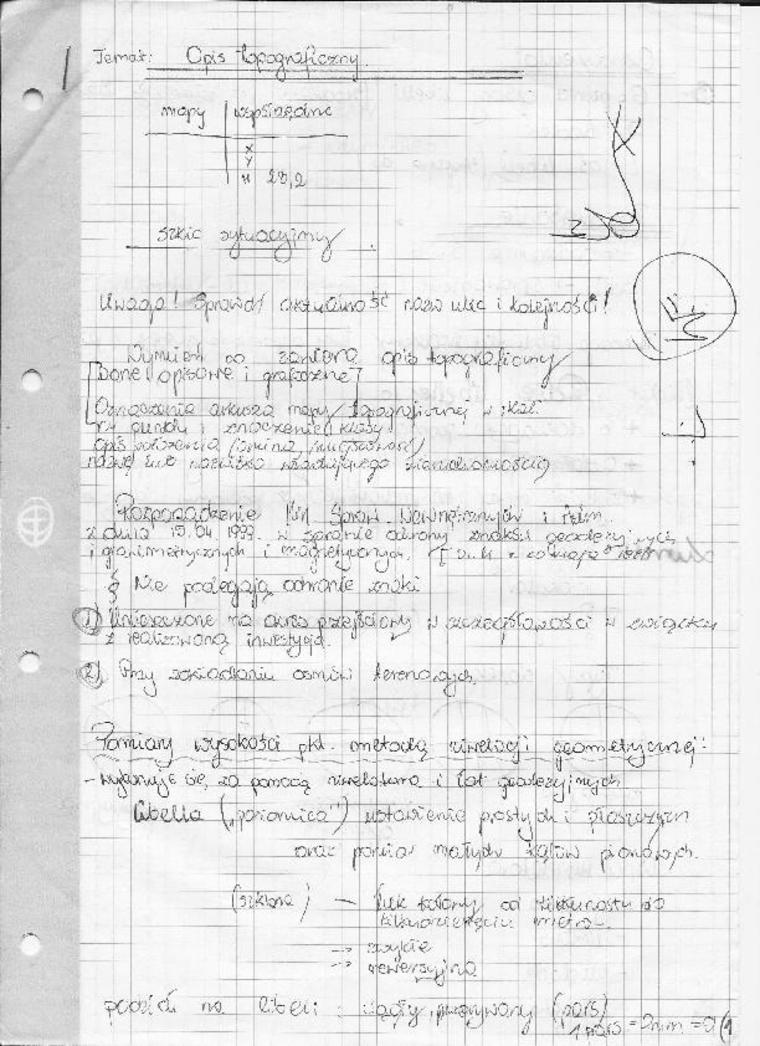 Temat: Opis topograficzny.
mapy współrzędne
x
y
H 23,2
szkic sytuacyjny
Uwaga! Sprawdź aktualność nazw ulic i kolejności!
Wymień co zawiera opis topograficzny
Dane opisowe i graficzne
Oznaczenie arkusza mapy topograficznej w skal.
nr punktu i znaczenie klasy
opis położenia (gmina, miejscowość)
nazwę lub nazwisko władającego nieruchomością
Rozporządzenie Min Spraw Wewnętrznych i Adm.
z dnia 15.04.1999. w sprawie ochrony znaków geodezyjnych
i grawimetrycznych i magnetycznych.
§ Nie podlegają ochronie znaki
1) Umieszczone na okres przejściowy w szczegółowości w związku
z realizowaną inwestycją.
2) Przy zakładaniu osnowy terenowych.
Pomiary wysokości pkt. metodą niwelacji geometrycznej:
- wykonuje się za pomocą niwelatora i łat geodezyjnych
libella („poziomica”) ustawienie prostych i płaszczyzn
oraz pomiar małych kątów pionowych.
(szklana) – łuk kołowy od kilkunastu do
kilkudziesięciu metró
→ zwykłe
→ rewersyjna
podział na libeli: ciągły, przerywany (pars)
1 pars = 2mm =